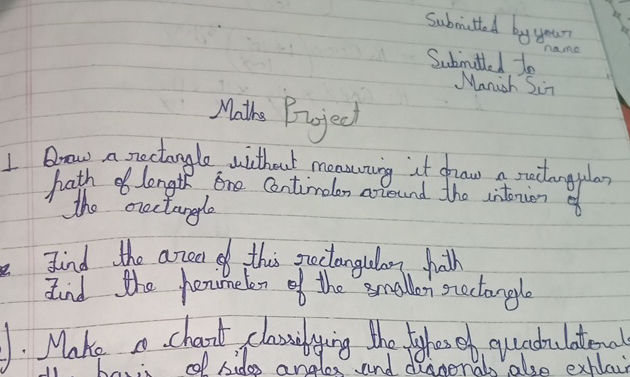 Submitted by your
name
Submitted to
Manish Sir
Maths Project
1 Draw a rectangle without measuring it draw a rectangular
path of length One Centimeter around the interior of
the rectangle
2 Find the area of this rectangular path
Find the perimeter of the smaller rectangle
). Make a chart classifying the types of quadrilaterals
basis of sides angles and diagonals also explain